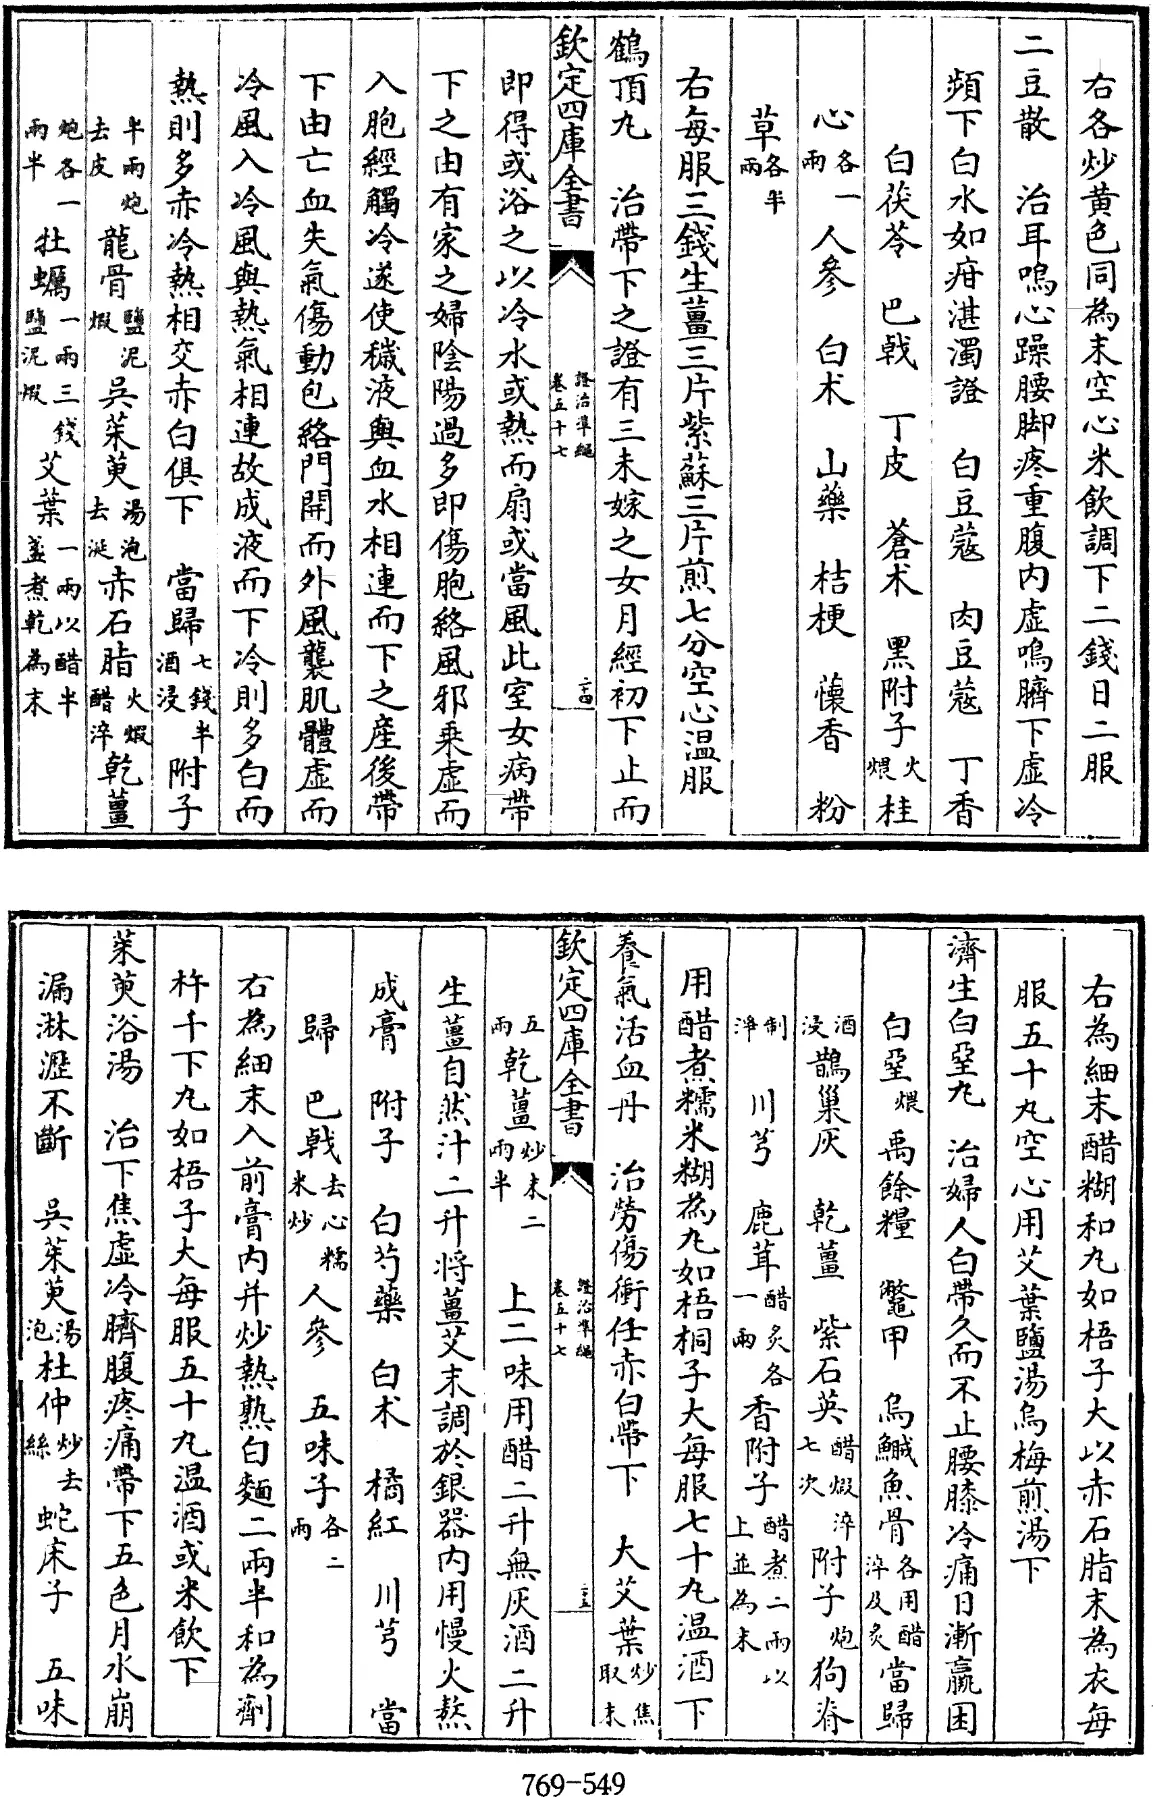 右各炒黄色同為末空心米飲調下二錢日二服
二豆散　治耳鳴心躁腰脚疼重腹内虚鳴臍下虚冷
頻下白水如疳湛濁證　白豆蔻　肉豆蔻　丁香
白茯苓　巴戟　丁皮　蒼术　黑附子火煨　桂
心各一兩　人參　白术　山藥　桔梗　懷香　粉
草各半兩
右每服三錢生薑三片紫蘇三片煎七分空心温服
鶴頂丸　治帶下之證有三未嫁之女月經初下止而
欽定四庫全書　證治準繩卷五十七　二十四
即得或浴之以冷水或熱而扇或當風此室女病帶
下之由有家之婦陰陽過多即傷胞絡風邪乗虚而
入胞經觸冷遂使穢液與血水相連而下之産後帶
下由亡血失氣傷動包絡門開而外風襲肌體虚而
冷風入冷風與熱氣相連故成液而下冷則多白而
熱則多赤冷熱相交赤白俱下　當歸七錢半酒浸　附子
半兩炮去皮　龍骨鹽泥煆　吳茱萸湯泡去涎　赤石脂火煆醋淬　乾薑
炮各一兩半　牡蠣一兩三錢鹽泥煆　艾葉一兩以醋半盞煮乾為末
右為細末醋糊和丸如梧子大以赤石脂末為衣每
服五十丸空心用艾葉鹽湯烏梅煎湯下
濟生白堊丸　治婦人白帶久而不止腰膝冷痛日漸羸困
白堊煨　禹餘糧　鼈甲　烏鰂魚骨各用醋淬及炙　當歸
酒浸　鵲巢灰　乾薑　紫石英醋煆淬七次　附子炮　狗脊
制淨　川芎　鹿茸醋炙各一兩　香附子醋煮二兩以上並為末
用醋煮糯米糊為丸如梧桐子大每服七十丸温酒下
養氣活血丹　治勞傷衝任赤白帶下　大艾葉炒焦取末
欽定四庫全書　證治準繩卷五十七　二十五
五兩　乾薑炒末二兩半　上二味用醋二升無灰酒二升
生薑自然汁二升將薑艾末調於銀器内用慢火熬
成膏　附子　白芍藥　白术　橘紅　川芎　當
歸　巴戟去心糯米炒　人參　五味子各二兩
右為細末入前膏内并炒熱熟白麵二兩半和為劑
杵千下丸如梧子大每服五十丸温酒或米飲下
茱萸浴湯　治下焦虚冷臍腹疼痛帶下五色月水崩
漏淋瀝不斷　吳茱萸湯泡　杜仲炒去絲　蛇床子　五味
769-549